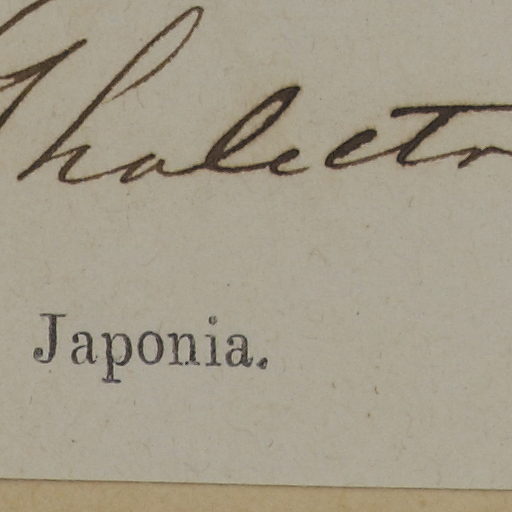 Thalictr
Japonia.